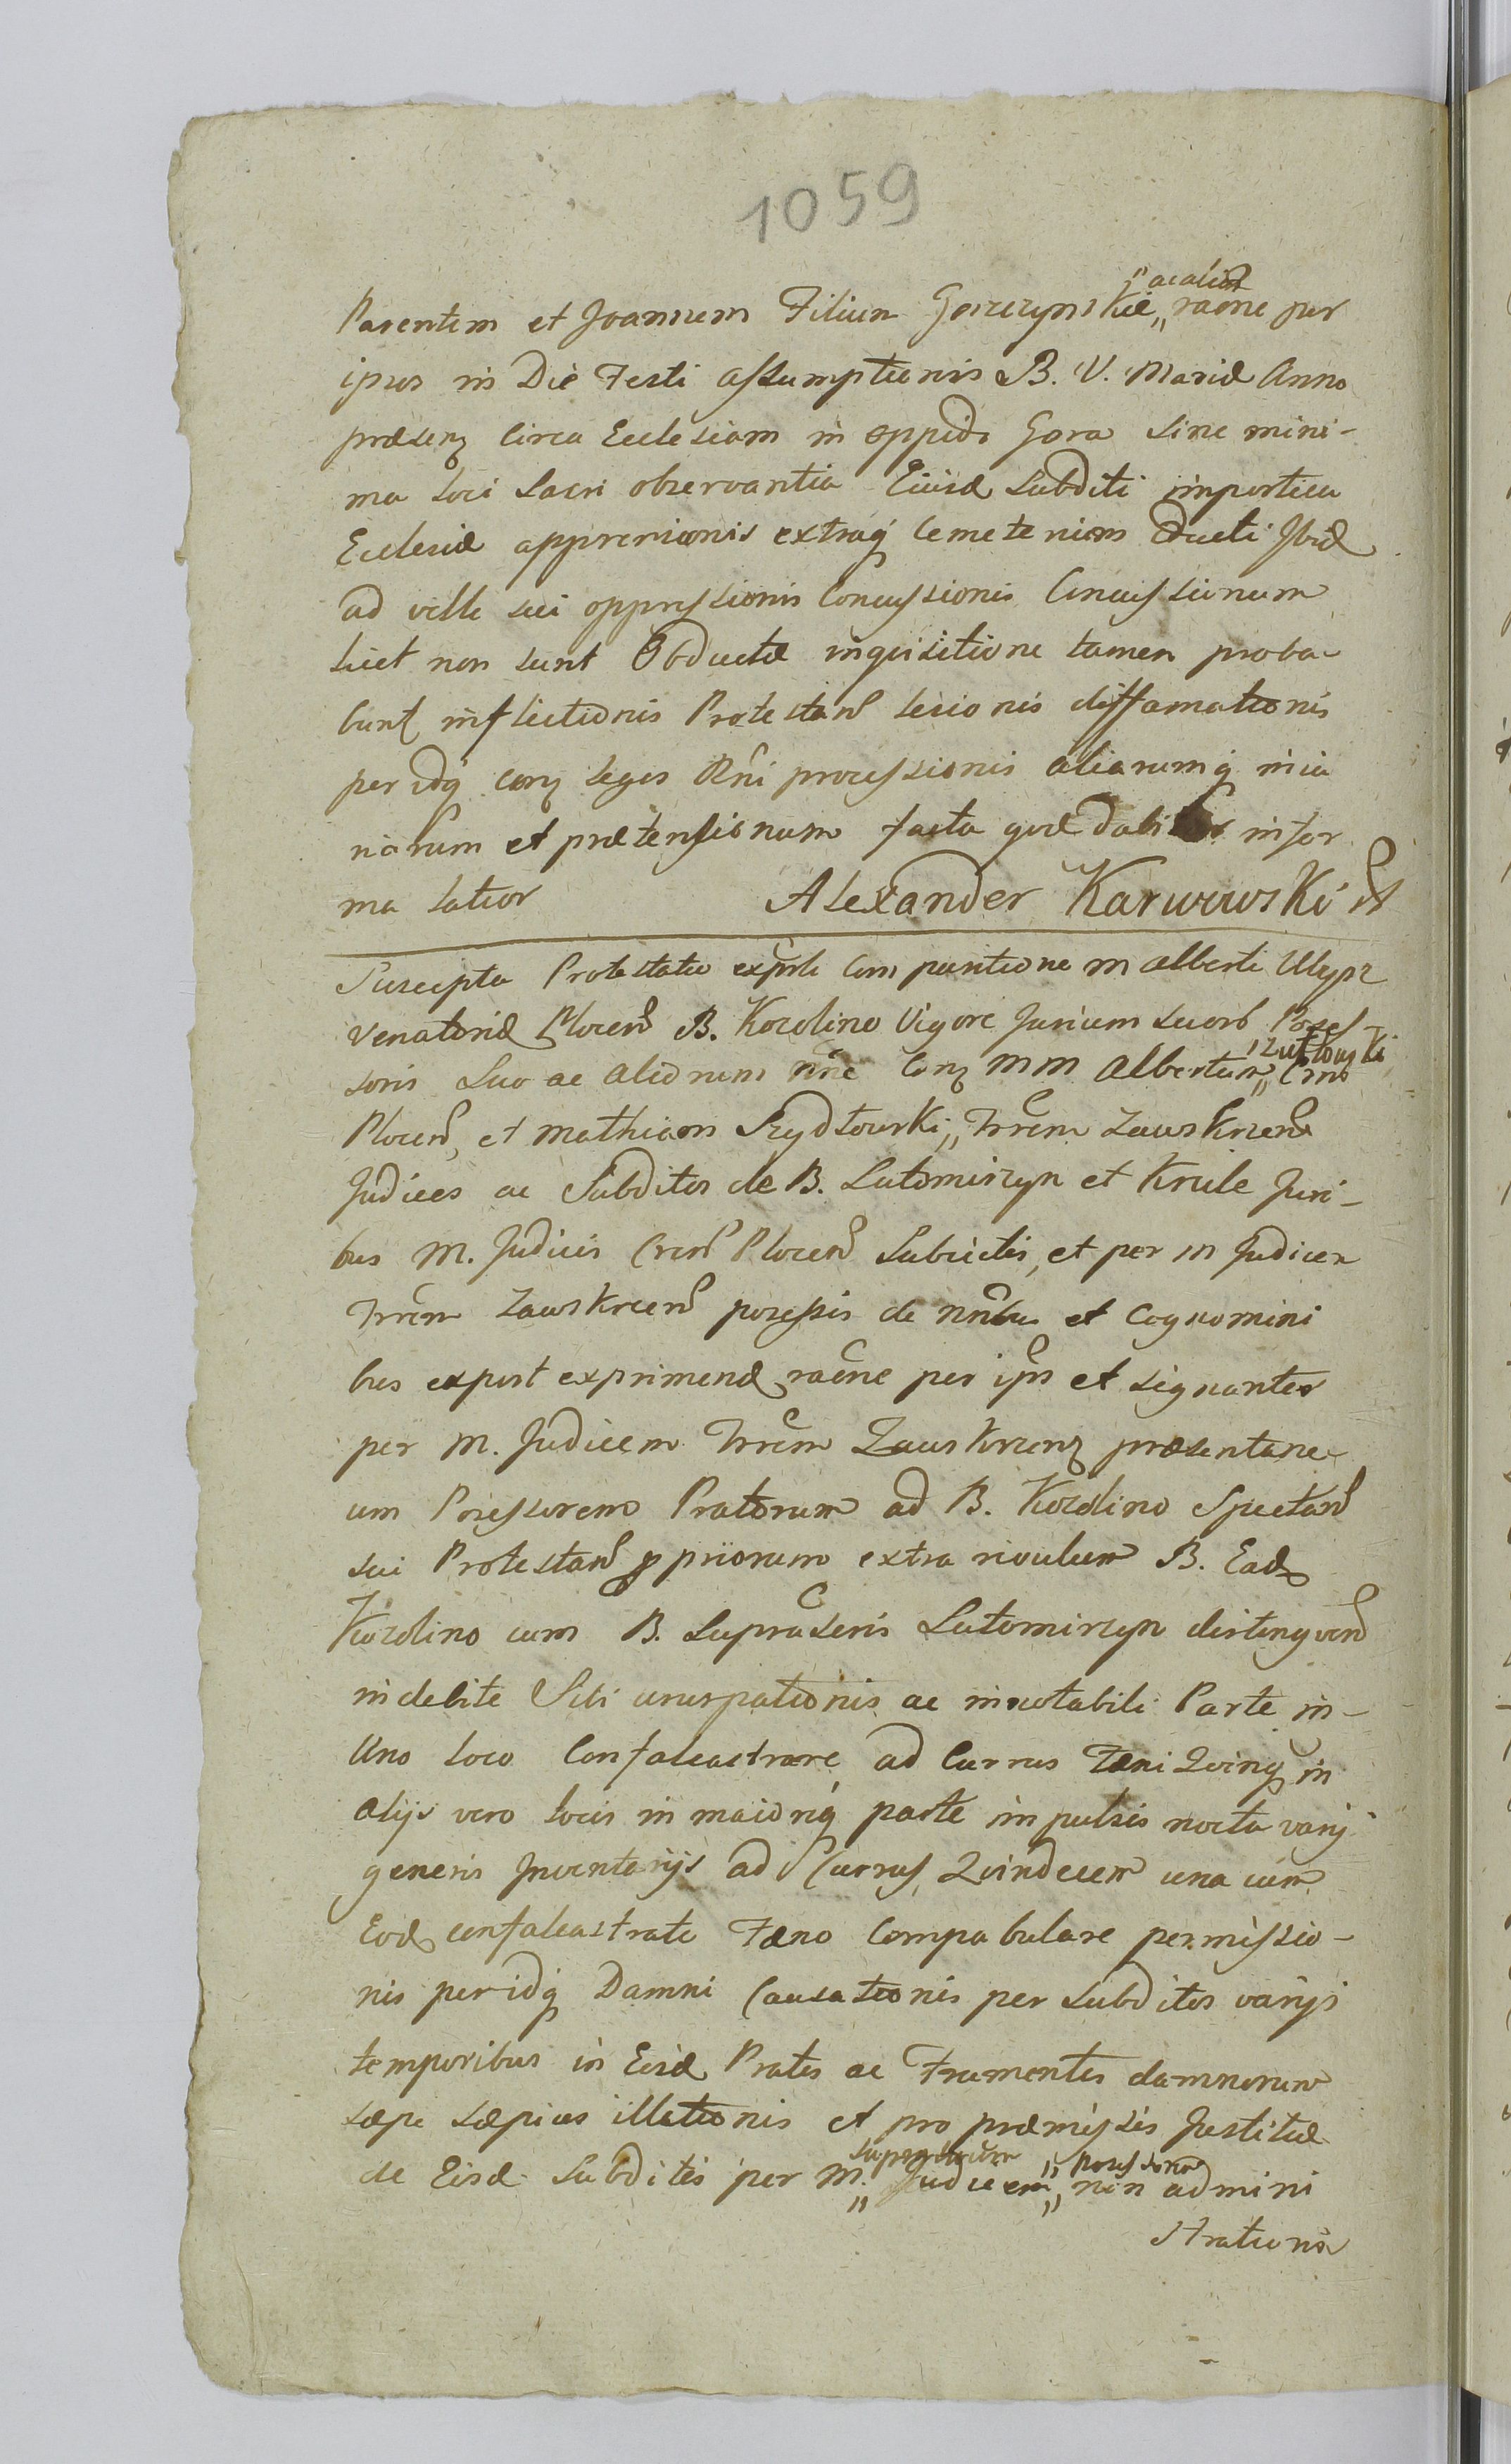 1059
Parentem et Joannem Filium Gorczynskie „ac alios" raone per
ipsos in Die Festi assumptionis B. V. Mariæ Anno
præsenz circa Ecclesiam in oppido Gora sine mini-
ma loci sacri observantia Eiusd subditi in porticu
Ecclesiæ apprensionis extraq cemeterium Educti Ibid
ad velle sui oppressionis Concussionis Concussionum
licet non sunt Obductæ inquisitione tamen proba
bunt inflictionis Protestan lesionis diffamationis
per idq conz leges Rni processionis aliarumq iniu
riarum et prætensionum facta quæ dabitur in for
ma latior Alexander Karwowski
Suscepta Protestatio expsti Comparitione m Alberti
Venatoris Plocen B. Kozolino Vigore Jurium suorb Posses
soris suo ac aliorum nne conz MM Albertum „Lutkowski" Crm
Plocen, et Mathiam Szydłowski „ Trrem Zawskrzen
Judices ac Subditos de B. Lutomirzyn et Krule Juri-
bus M. Judicis Crens Plocen Subiectis, et per m Judicem
Trrem Zawskrzen possessis de nnibus et Cognomini
bus expost exprimend raone per ipos et signanter
per M. Judicem Trrem Zawskrzenz præsentane
um Possessorem Pratorum ad B. Kozolino Spectan
sui Protestan ppriorum extra rivulum B. Ead
Kozolino cum B. supraseris Lutomirzyn distinguen
indebite Sibi usurpationis ac in notabili Parte in-
uno loco Confalcastrare ad Currus Fæni Quinq in
alijs vero locis in maioriq parte impulsis noctu varij
generis Inventarijs ad Currus Quindecem una cum
Eod confalcastrato Fæno Compabulare permissio-
nis per idq Damni Causationis per subditos varijs
temporibus in Eisd Pratis ac Frumentis damnorum
sæpe sæpius illationis et pro præmissis Justitiæ
de Eisd Subditis per M. „ Judicem „ possessorem non admini
strationis